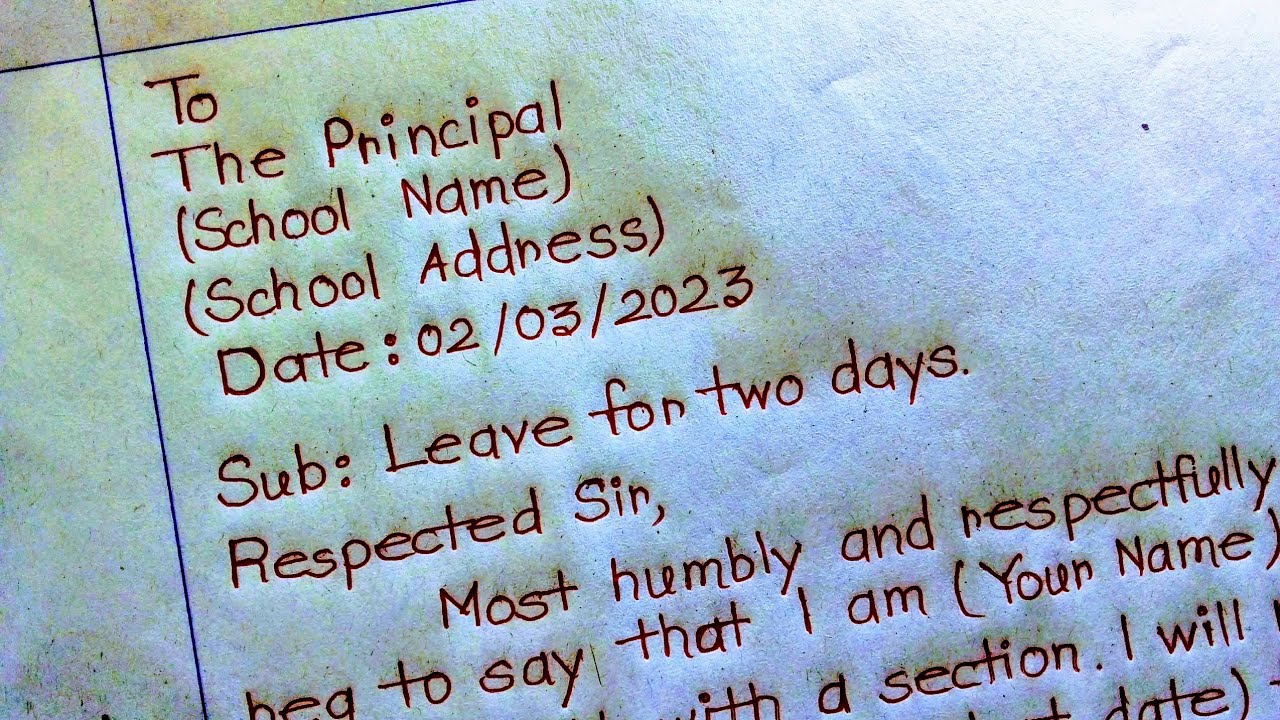 To
The Principal
(School Name)
(School Address)
Date: 02/03/2023
Sub: Leave for two days.
Respected Sir,
Most humbly and respectfully
beg to say that I am (Your Name)
with a section. I will
date)